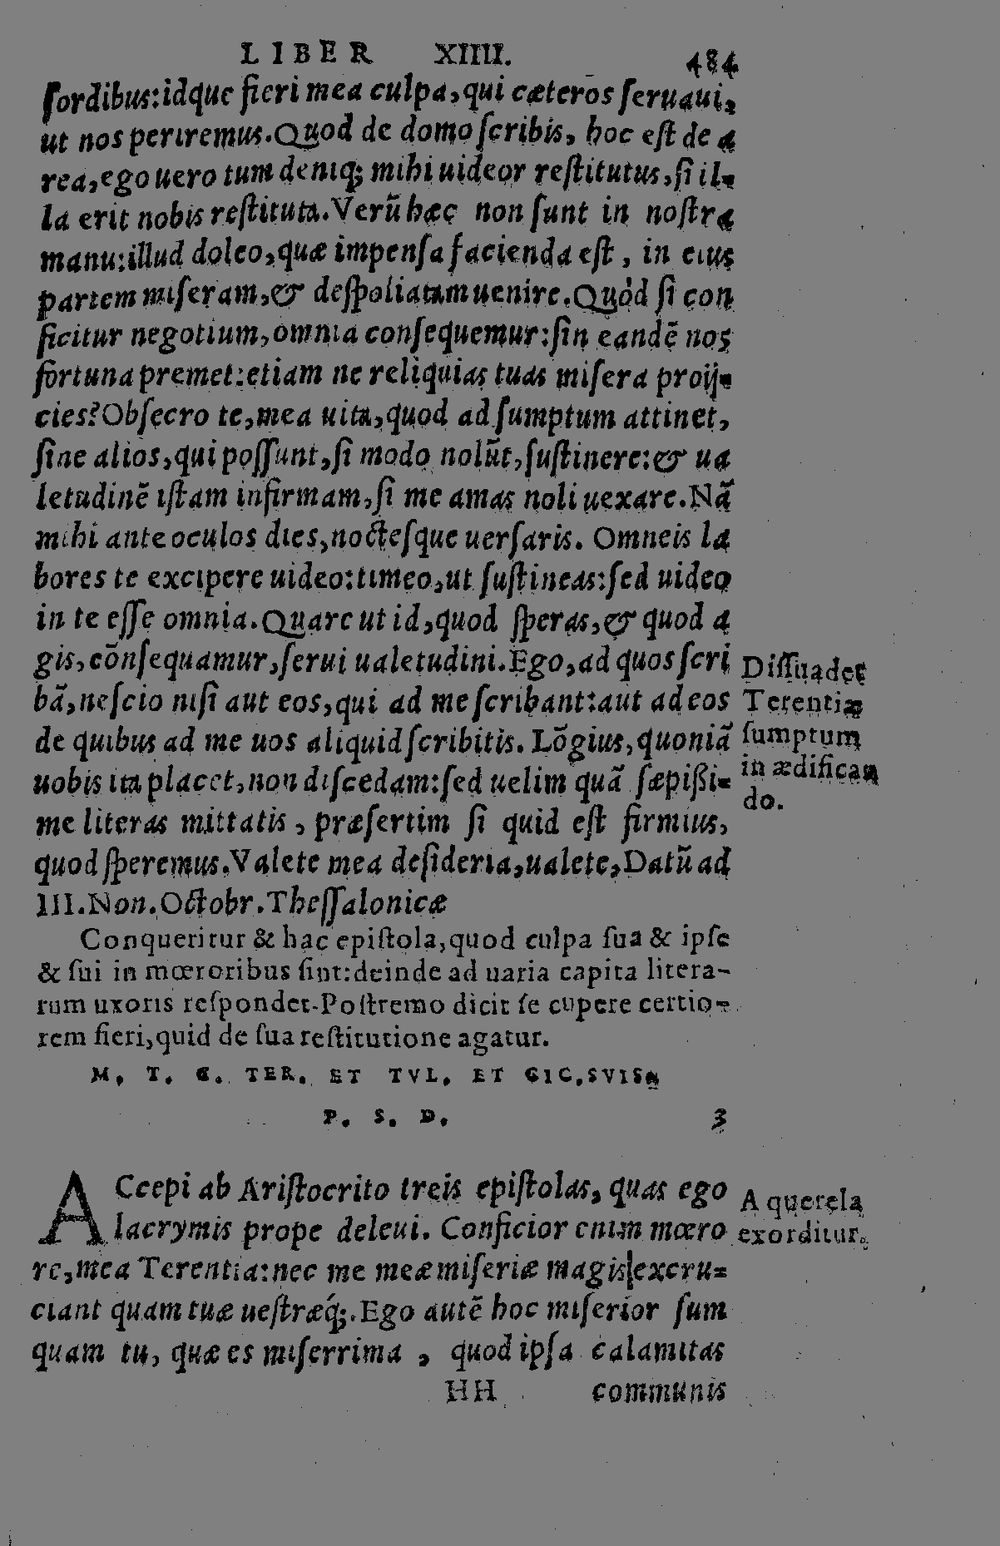 LIBER XIIII. 484
ſordibus:idque fieri mea culpa,qui cæteros ſeruaui,
ut nos periremus.Quod de domo ſcribis, hoc eſt de a
rea,ego uero tum deniq; mihi uideor reſtitutus,ſi il-
la erit nobis reſtituta.Verũ hæc non ſunt in noſtra
manu:illud doleo,quæ impenſa facienda eſt, in eius
partem miſeram,& deſpoliatam uenire.Quòd ſi con
ficitur negotium,omnia conſequemur:ſin eandẽ nos
fortuna premet:etiam ne reliquias tuas miſera proij-
cies?Obſecro te,mea uita,quod ad ſumptum attinet,
ſine alios,qui poſſunt,ſi modo nolũt,ſuſtinere:& ua
letudinẽ iſtam infirmam,ſi me amas noli uexare.Nã
mihi ante oculos dies,nocteſque uerſaris. Omneis la
bores te excipere uideo:timeo,ut ſuſtineas:ſed uideo
in te eſſe omnia.Quare ut id,quod ſperas,& quod a
gis,cõnſequamur,ſerui ualetudini.Ego,ad quos ſcri
bã,neſcio niſi aut eos,qui ad me ſcribant:aut ad eos
de quibus ad me uos aliquid ſcribitis. Lõgius,quoniã
uobis ita placet,non diſcedam:ſed uelim quã ſæpißi-
me literas mittatis, præſertim ſi quid eſt firmius,
quod ſperemus.Valete mea deſideria,ualete,Datũ ad
III.Non.Octobr.Theſſalonicæ
Diſſuadet
Terentiæ
ſumptum
in ædifican
do.
Conqueritur & hac epiſtola,quod culpa ſua & ipſe
& ſui in mœroribus ſint:deinde ad uaria capita litera-
rum uxoris reſpondet.Poſtremo dicit ſe cupere certio-
rem fieri,quid de ſua reſtitutione agatur.
M. T. C. TER. ET TVL. ET CIC.SVIS.
P. S. D. 3
ACcepi ab Ariſtocrito treis epiſtolas, quas ego
lacrymis prope deleui. Conficior enim mœro
re,mea Terentia:nec me meæ miſeriæ magis excru-
ciant quam tuæ ueſtræq́;.Ego autẽ hoc miſerior ſum
quam tu, quæ es miſerrima , quod ipſa calamitas
A querela
exorditur.
HH communis